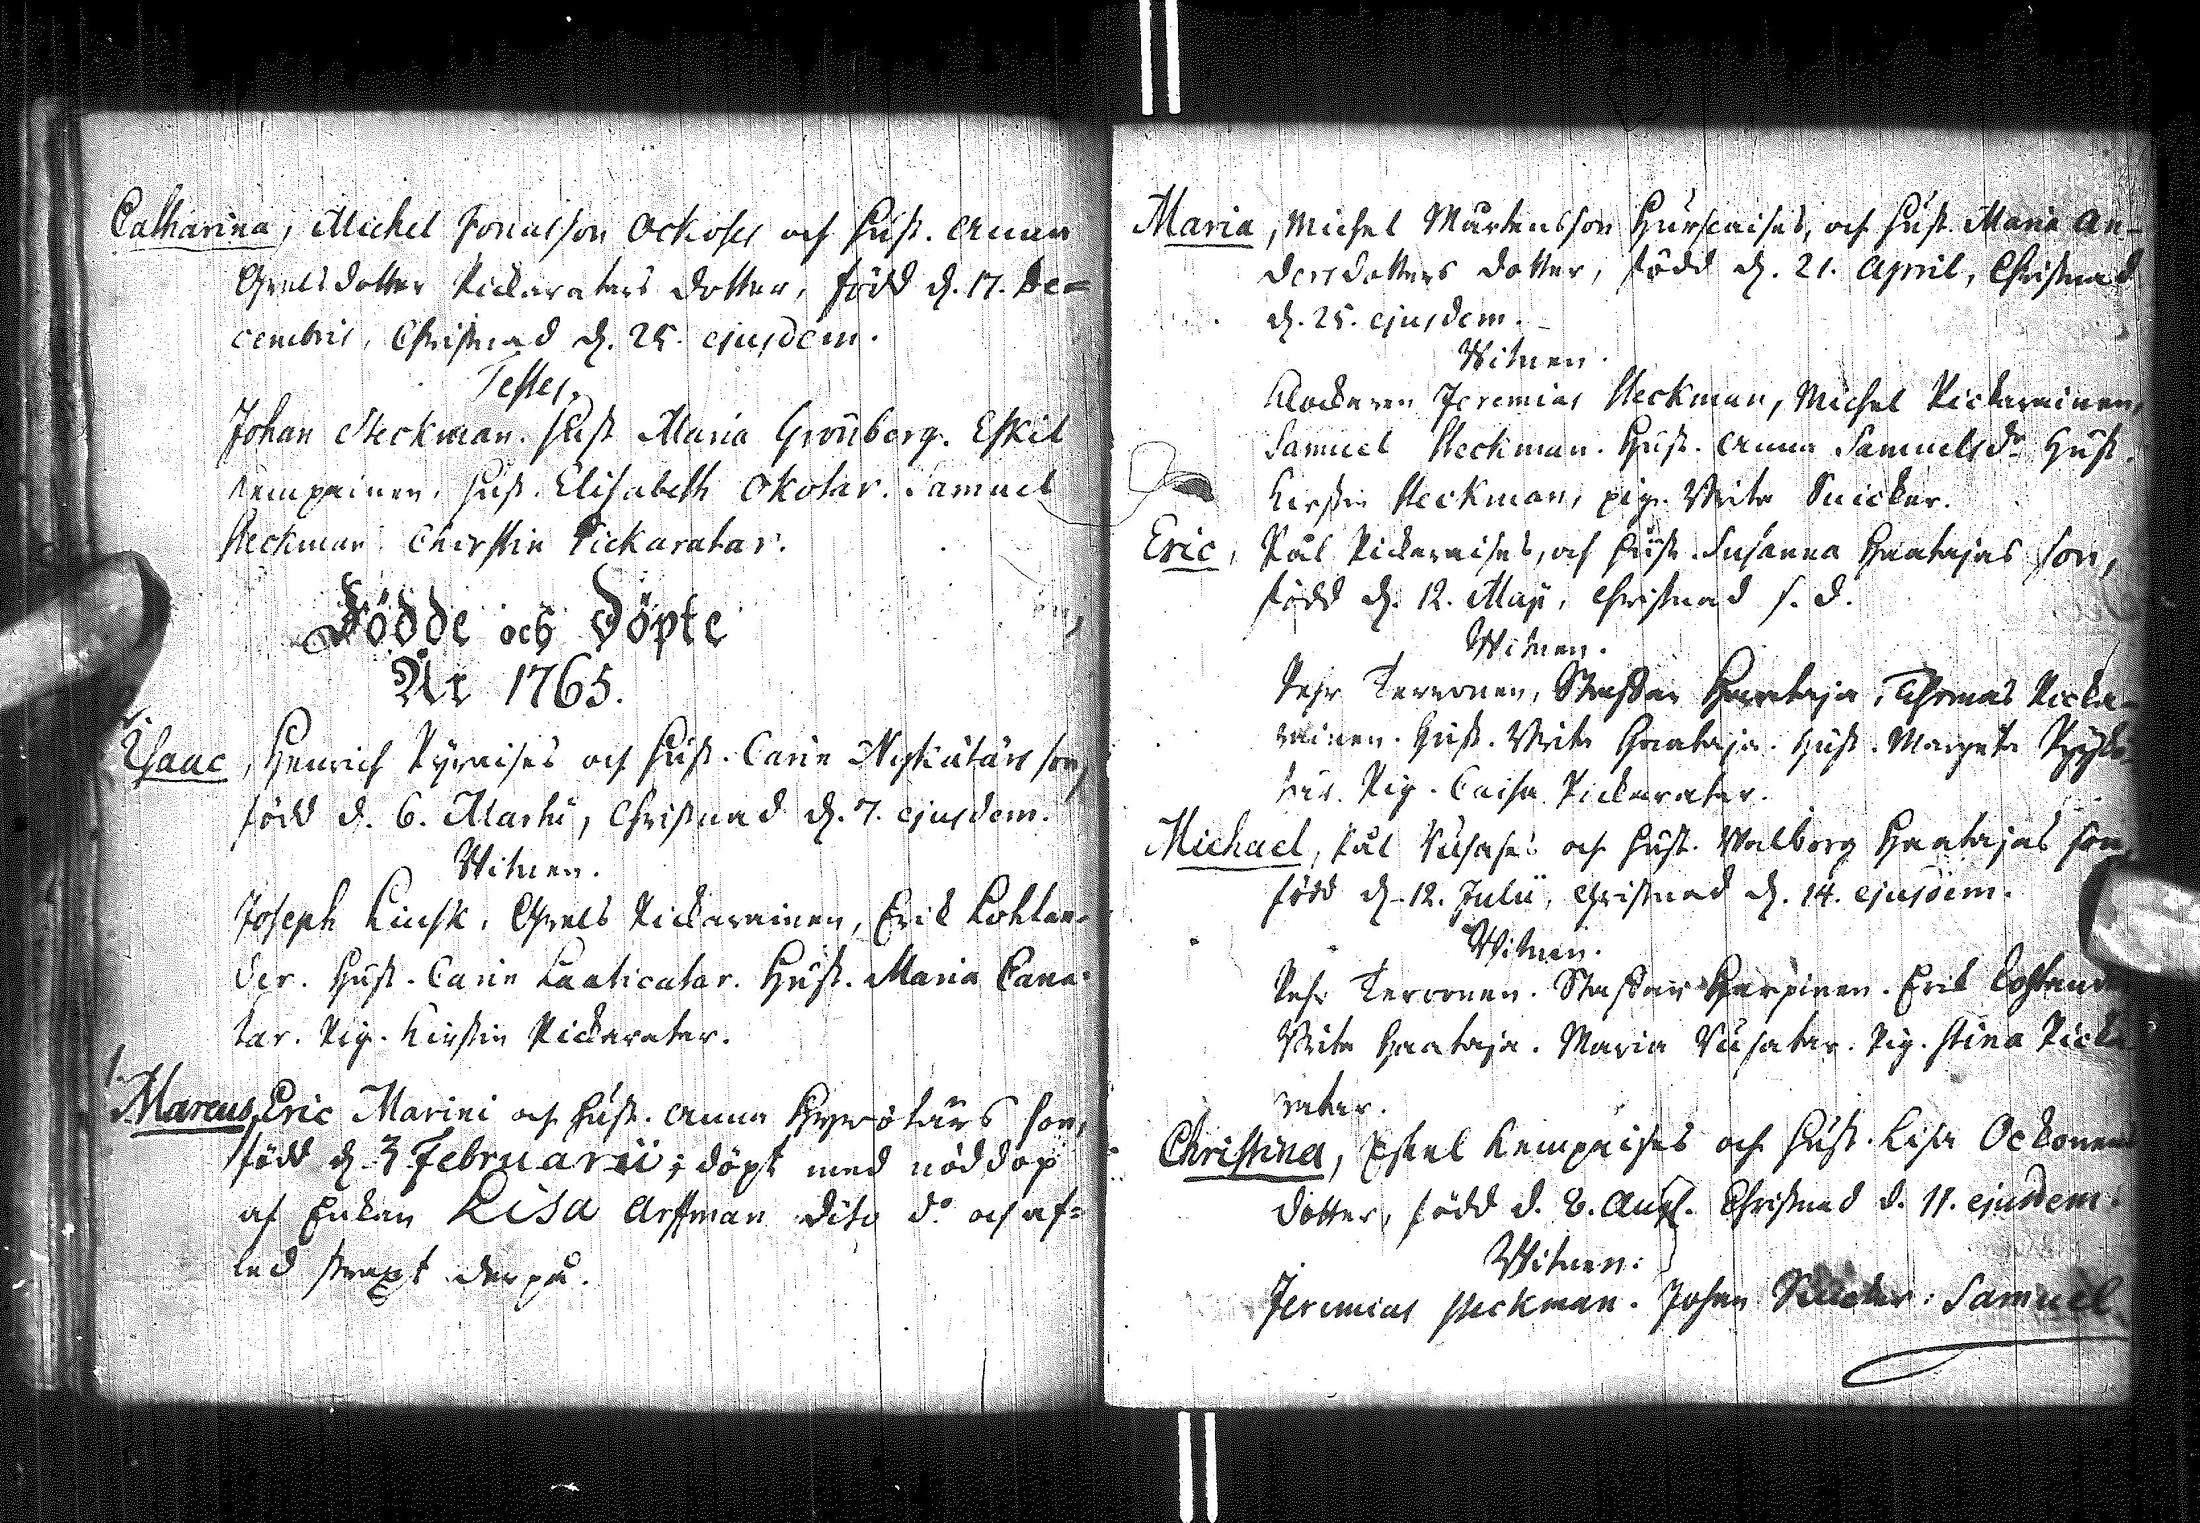 Catharina, Michel Jonasson Ockoses och Hust. Anna
Grelsdotter Pickaratars dotter, född d. 17. De=
cembris, Christnad d. 25. ejusdem.
Testes.
Johan Heckman. Hust. Maria Grönberg. Eskil
Kempainen. Hust. Elisabeth Okotar. Samuel
Heckman. Cherstin Pickaratar.
Födde och Döpte
År 1765.
Isaac, Henrich Pyraises och Hust. Carin son,
född d. 6. Martii, Christnad d. 7. ejusdem.
Witnen.
Joseph Grels Pickarainen, Erik
der. Hust. Carin Laaticatar. Hust. Maria Cana=
tar. Pig. Kirstin Pickaratar.
Marcus, Eric Marini och Hust. Anna son,
född d. 3 Februarii; döpt med nöddop
af Enkan Lisa Arffman dito do och af=
led straxt derpå.
Maria, Michel Mårtensson Hurscaises, och Hust. Maria An=
dersdotters dotter, född d. 21. April, Christnad
d. 25. ejusdem.
Witnen.
Klockaren Jeremias Heckman, Michel Pickarainen,
Samuel Heckman. Hust. Anna Samuelsdr Hust.
Kirstin Heckman, pig. Brita Snicker.
Eric, Pål Pickaraises, och Hust. Susanna Haatajas son,
född d. 12. Maji, Christnad s. d.
Witnen.
Pehr Tervonen, Staffan Haataja, Thomas Picka=
rainen. Hust. Brita Haataja. Hust. Margeta
tär. Pig. Caisa Pickaratar.
Michael, Pål och Hust. Walborg Haatajas son,
född d. 12. Julii, Christnad d. 14. ejusdem.
Witnen.
Pehr Tervonen. Staffan Erik
Brita Haataja. Maria Pig. Stina Picka
ratar.
Christina, Eskel Kempaises och Hust. Lisa Ockonen
dotter, född d. 8. Aug. Christnad d. 11. ejusdem.
Witnen:
Jeremias Heckman. Johan Samuel